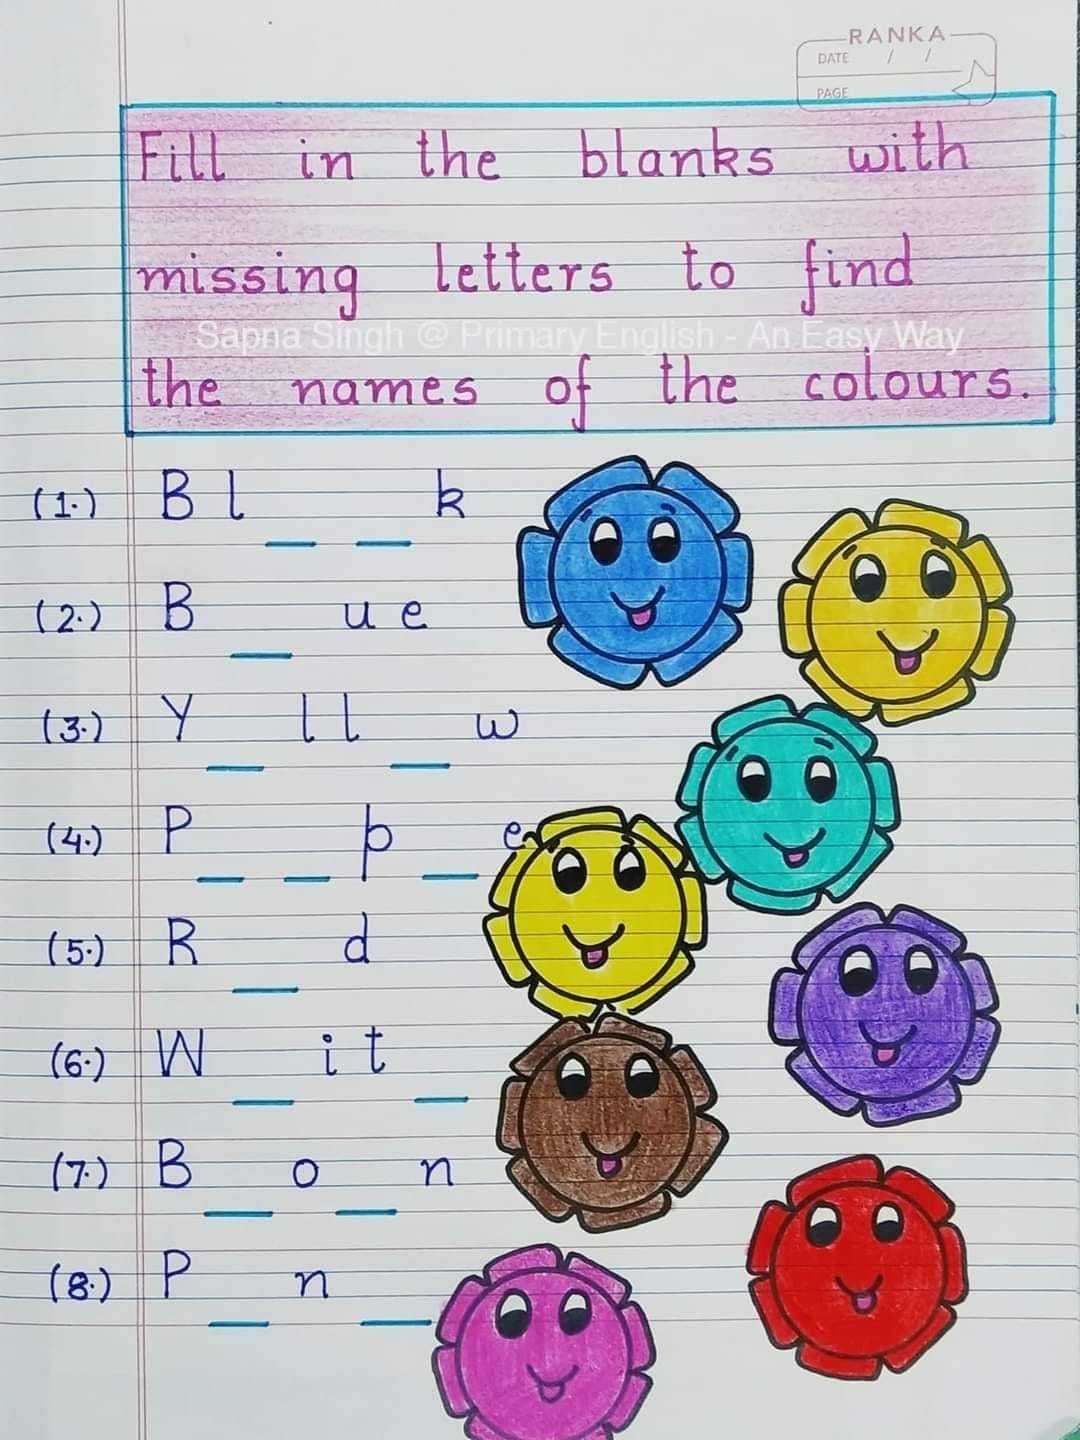 RANKA
DATE / /
PAGE
Fill in the blanks with
missing letters to find
Sapna Singh @ Primary English - An Easy Way
the names of the colours.
(1.) B l _ _ k
(2.) B _ u e
(3.) Y _ l l _ w
(4.) P _ _ p _ e
(5.) R _ d
(6.) W _ i t _
(7.) B _ o _ n
(8.) P _ n _